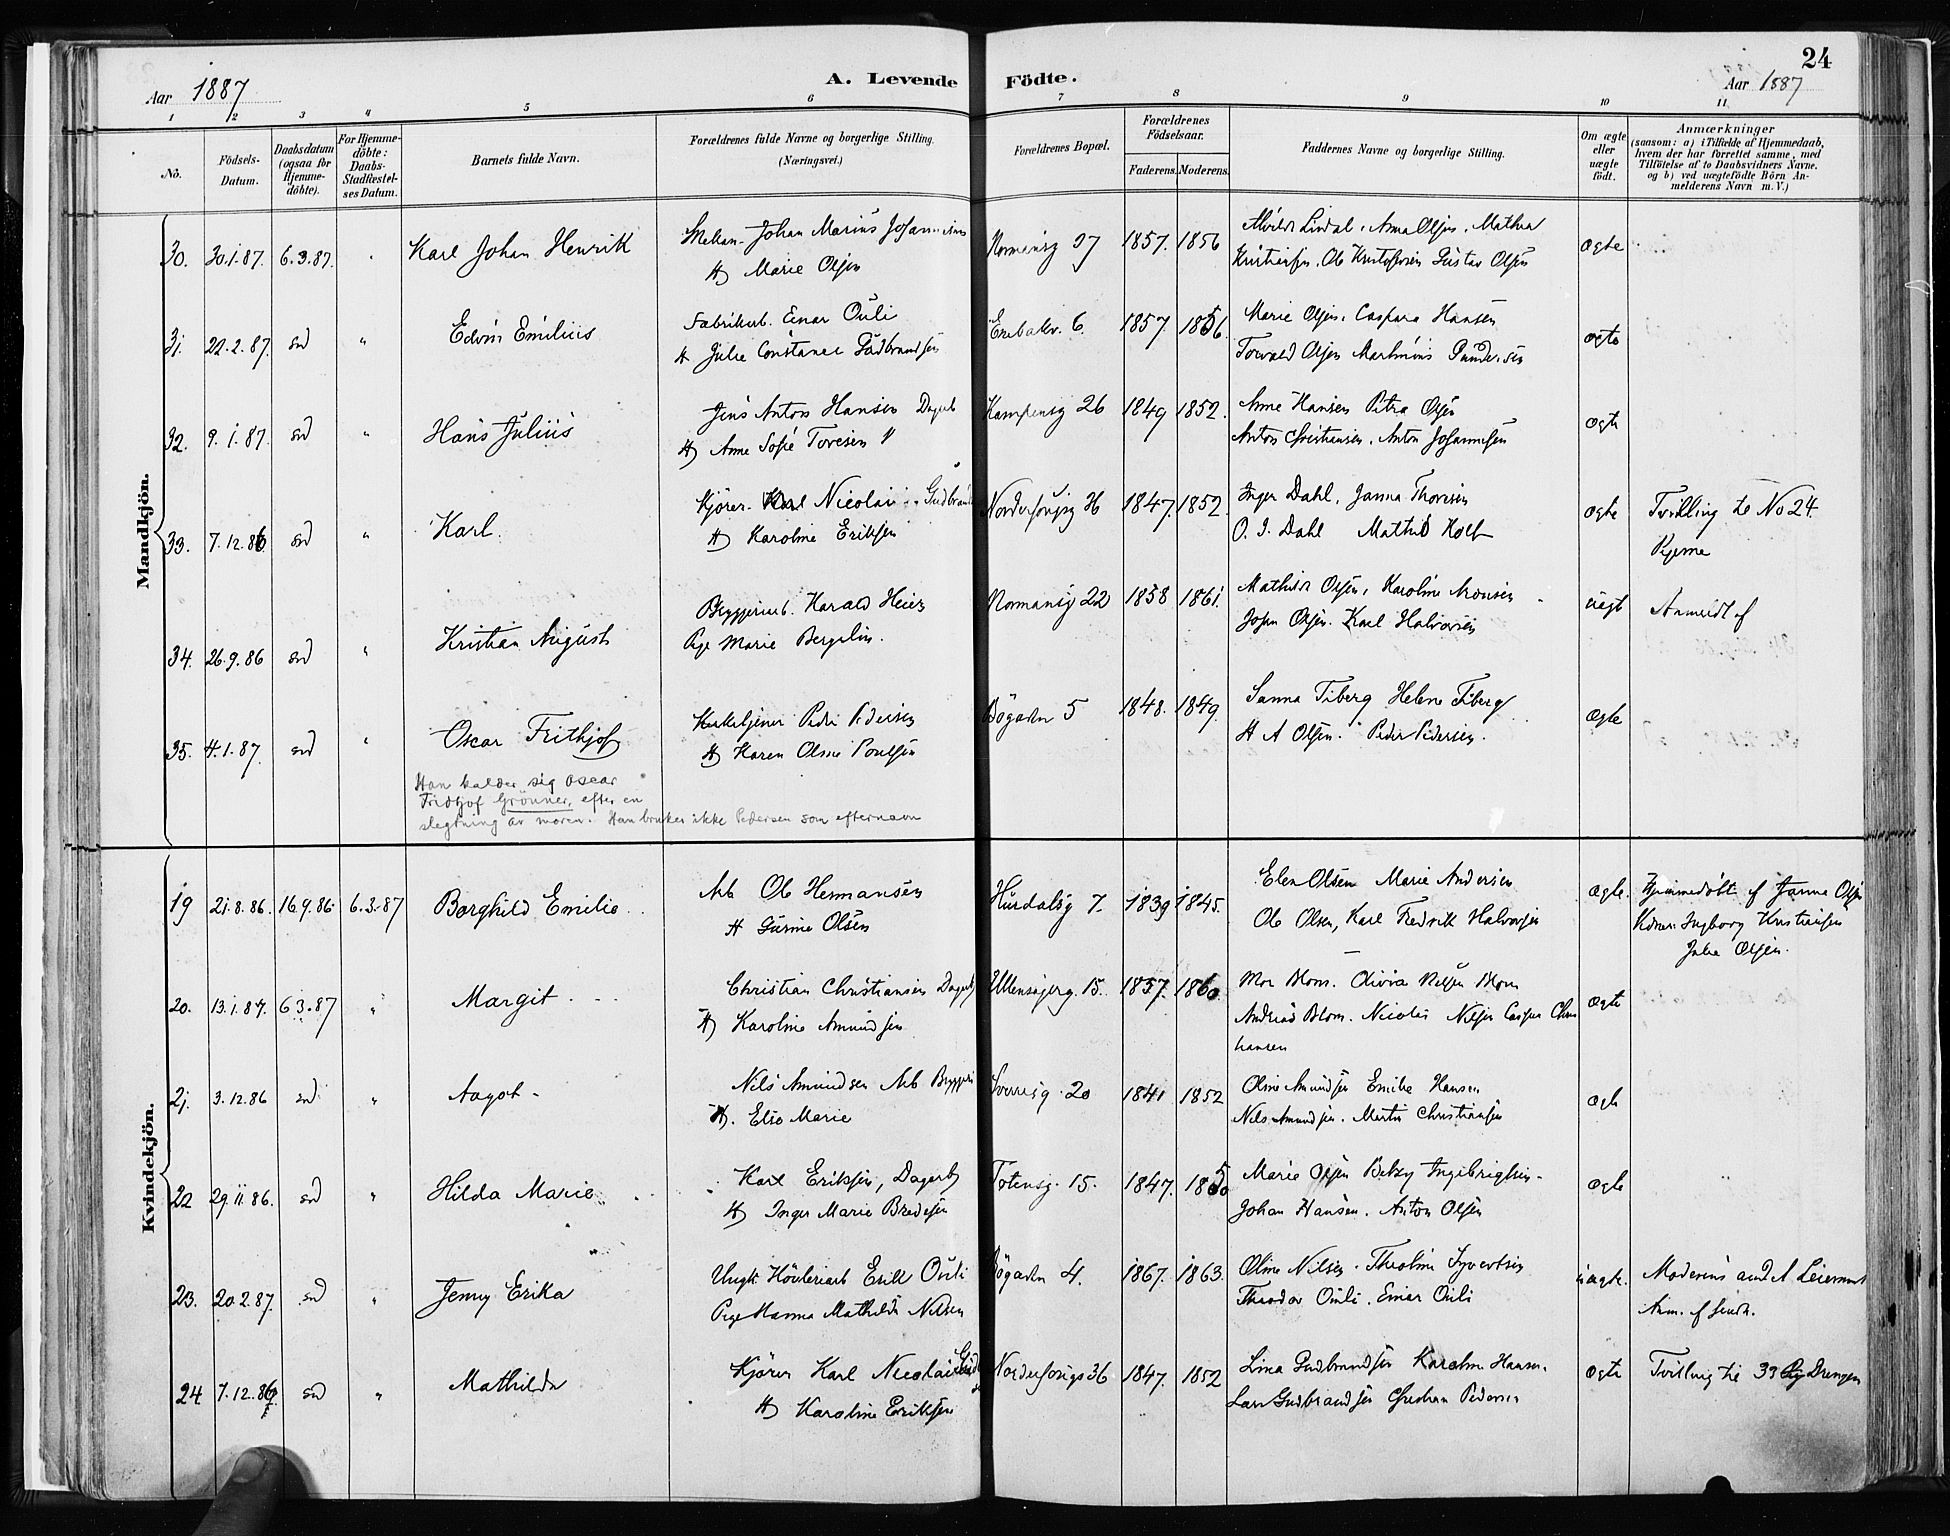 24
Aar 1887
A. Levende Födte.
Aar 1887
1 2 3 4 5 6 7 8 9 10 11
No.
Födsels-
Datum.
Daabsdatum
(ogsaa for
Hjemme-
döbte).
For Hjemme-
döbte:
Daabs-
Stadfæstel-
ses Datum.
Barnets fulde Navn.
Forældrenes fulde Navne og borgerlige Stilling.
(Næringsvei.)
Forældrenes Bopæl.
Forældrenes
Födselsaar.
Faderens. Moderens.
Faddernes Navne og borgerlige Stilling.
Om ægte
eller
uægte
födt.
Anmærkninger
(saasom: a) i Tilfælde af Hjemmedaab,
hvem der har forrettet samme, med
Tilföielse af to Daabsvidners Navne.
og b) ved uægtefödte Börn An-
melderens Navn m. V.)
Mandkjön.
30. 30.1.87. 6.3.87. Karl Johan Henrik
Johan Marius Johannesen
H Marie Olsen
1857. 1856
Lindal, Anna Olsen, Mathea
Kristiansen, Ole Kristofersen Gustav Olsen
ægte
31. 22.2.87. sd " Edvin Emilius
Fabrikarb. Einar Ouli
H Julie Constance Gudbrandsen
6. 1857. 1856.
Marie Olsen, Caspara Hansen
Torvald Olsen Martinius Gundersen
ægte
32. 9.1.87. sd " Hans Julius
Jens Anton Hansen Dagarb
H Anne Sofie Toresen "
Kampensg 26 1849 1852.
Anne Hansen Petra Olsen
Anton Christiansen, Anton Johannesen
ægte
33. 7.12.86 sd " Karl.
Kjörer Karl Nicolai Gudbrand
H Karoline Eriksen
36 1847. 1852.
Inger Dahl, Janna Thoresen
O. J. Dahl Mathild Holt
ægte
Tvilling til No 24.
Pigerne
34. 26.9.86 sd " Kristian August
Bryggeriarb. Harald Heier
Pige Marie Bergelin.
Normansg 22 1858 1861.
Mathilde Olsen, Karoline Aronsen
Johan Olsen. Karl Halvorsen
uægt
Anmeldt af
35. 4.1.87. sd " Oscar Frithjof
Kirketjener Peder Pedersen
H Karen Oline Poulsen
Bögaden 5 1848. 1849.
Sanna Tiberg Helene Tiberg
H A Olsen. Peder Pedersen.
ægte
Han kalder sig Oscar
Fridtjof Grönner, efter en
slegtning av moren. Han bruker ikke Pedersen som efternavn
Kvindekjön.
19 21.8.86. 16.9.86 6.3.87 Borghild Emilie
Arb Ole Hermansen
H Gurine Olsen
Hurdalsg 7. 1839 1845.
Elen Olsen Marie Andersen
Ole Olsen, Karl Fredrik Halvorsen
ægte.
Hjemmedöbt af Janna Olsen
Vidner: Ingborg Kristiansen
Julie Olsen.
20. 13.1.87. 6 3.87 " Margit
Christian Christiansen Dagarb
H Karoline Amundsen
Ullensagerg. 15. 1857. 1860.
Mor Blom. Olivia Nilsen Blom
Andreas Blom. Nicolai Nilsen Casper Chris
hansen
ægte
21. 3.12.86 sd " Aagot
Nils Amundsen Arb Bryggeri
H. Else Marie
Sverresg 20 1841 1852
Oline Amundsen Emilie Hansen
Nils Amundsen. Martin Christiansen
ægte
22 29.11.86. sd " Hilda Marie
Karl Eriksen, Dagarb
H Inger Marie Bredesen
Totensg. 15. 1847. 1850
Marie Olsen Betzy Ingebrigtsen
Johan Hansen. Anton Olsen
ægte
23. 20.2.87. sd " Jenny Erika
Ungk Höuleriarb Erik Ouli
Pige Hanna Mathilde Nilsen
Bögaden 4. 1867. 1863.
Oline Nilsen. Theoline Syvertsen
Theodor Ouli. Einar Ouli
uægte.
Moderens and Leiermaal
Anm. af hende.
24 7.12.86 sd " Mathilde
Kjörer Karl Nicolai Gudb
H Karoline Eriksen
36 1847. 1852
Lina Gudbrandsen Karoline Hansen.
Lars Gudbrandsen Christian Pedersen
ægte
Tvilling til 33 Drengen